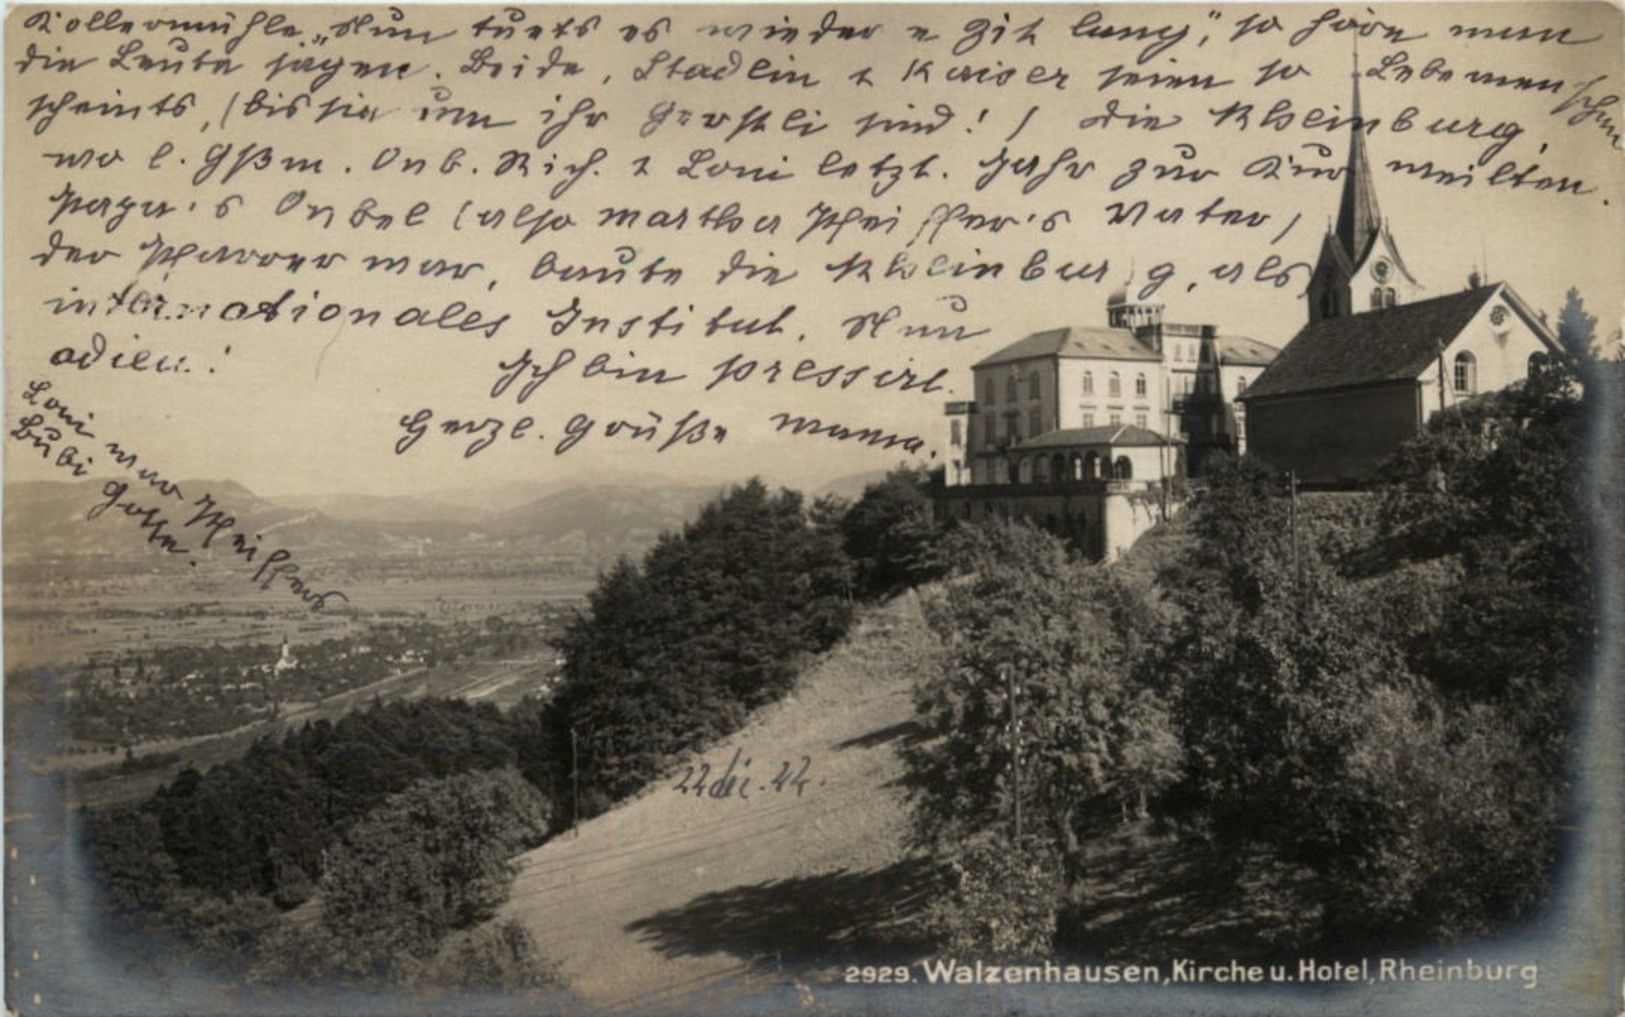 Kollermühle. „Nun tuets es wieder e Zit lang", so höre man
die Leute sagen. Beide, Stadlin & Kaiser seien so Lebemenschen
scheints, (bis sie um ihr Gerstli sind!) Die Rheinburg,
wo l. Gßm. Onk. Rich. & Loni letzt. Jahr zur Kur weilten.
Papa's Onkel (also Martha Pfeiffer's Vater)
der Pfarrer war, baute die Rheinburg, als
internationales Institut. Nun
adieu!
Ich bin pressirt.
Herzl. Grüße Mama.
Loni war Pfeiffers
Bubi Gotte.
22 déc. 22.
2929. Walzenhausen, Kirche u. Hotel, Rheinburg